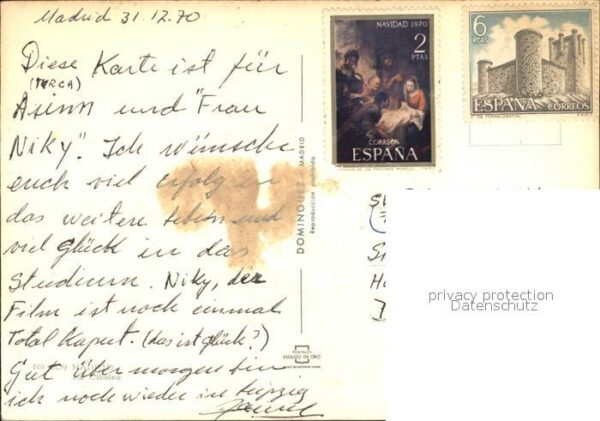 Madrid 31.12.70
Diese Karte ist für
(TURCA)
Asinn und "Frau
Niky". Ich wünsche
euch viel Erfolg in
das weitere Leben und
viel glück in das
Studium. Niky, der
Film ist noch einmal
Total Kaput. (das ist glück?)
Gut übermorgen bin
ich noch wieder in Leipzig
NAVIDAD 1970
2
PTAS
CORREOS
ESPAÑA
6
PTAS
ESPAÑA CORREOS
DOMINGUEZ MADRID
Reproducción prohibida
POSTALES
ESCUDO DE ORO
Cibeles
privacy protection
Datenschutz